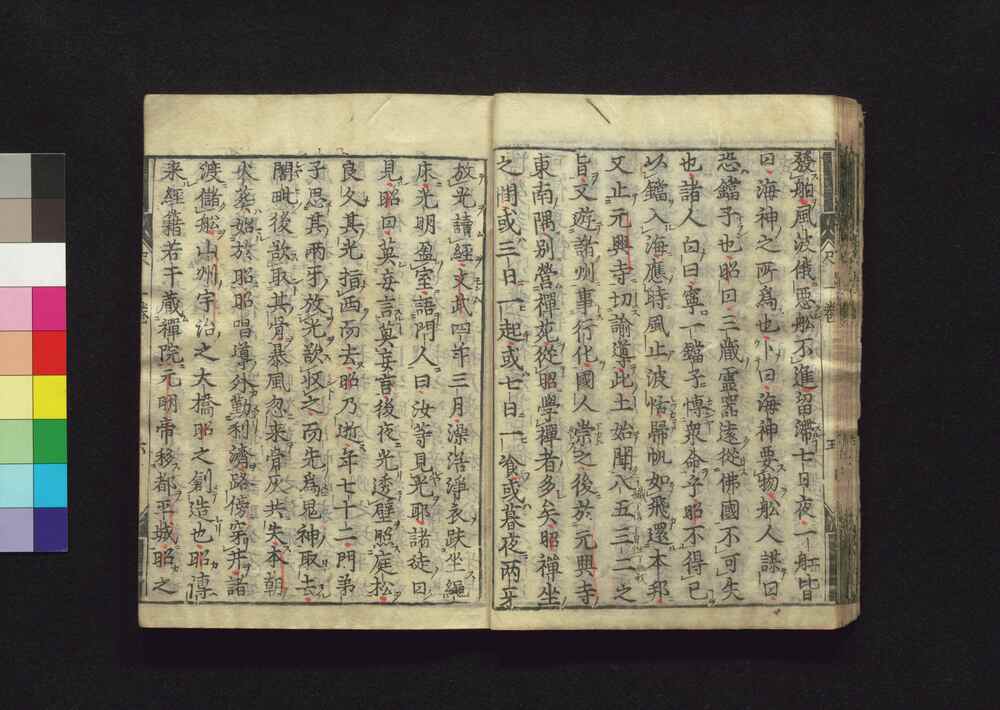 發舶風波俄惡舩不進留滯七日夜一舩皆
曰海神之所為也卜曰海神要物舩人謀曰
恐鐺子也昭曰三藏靈器遠從佛國不可失
也諸人白曰寧一鐺子博衆命乎昭不得已
以鐺入海應時風止波恬歸帆如飛還本邦
又止元興寺切諭導此土始聞八五三二之
旨又遊諸州事行化國人崇之後於元興寺
東南隅別營禪苑從昭學禪者多矣昭禪坐
之間或三日一起或七日一飡或暮夜兩牙
放光讀經文武四年三月澡浴淨衣趺坐繩
床光明盈室語門人曰汝等見光耶諸徒曰
見昭曰莫妄言莫妄言後夜光透壁照庭松
良久其光指西而去昭乃逝年七十二門弟
子思其兩牙放光欲収之而先為鬼神取去
闍毗後欲取其骨暴風忽來骨灰共失本朝
火葬始於昭昭唱導外勤利濟路傍穿井諸
渡儲舩山州宇治之大橋昭之創造也昭傳
来經籍若干藏禪院元明帝移都平城昭之
卷
五
卷
六